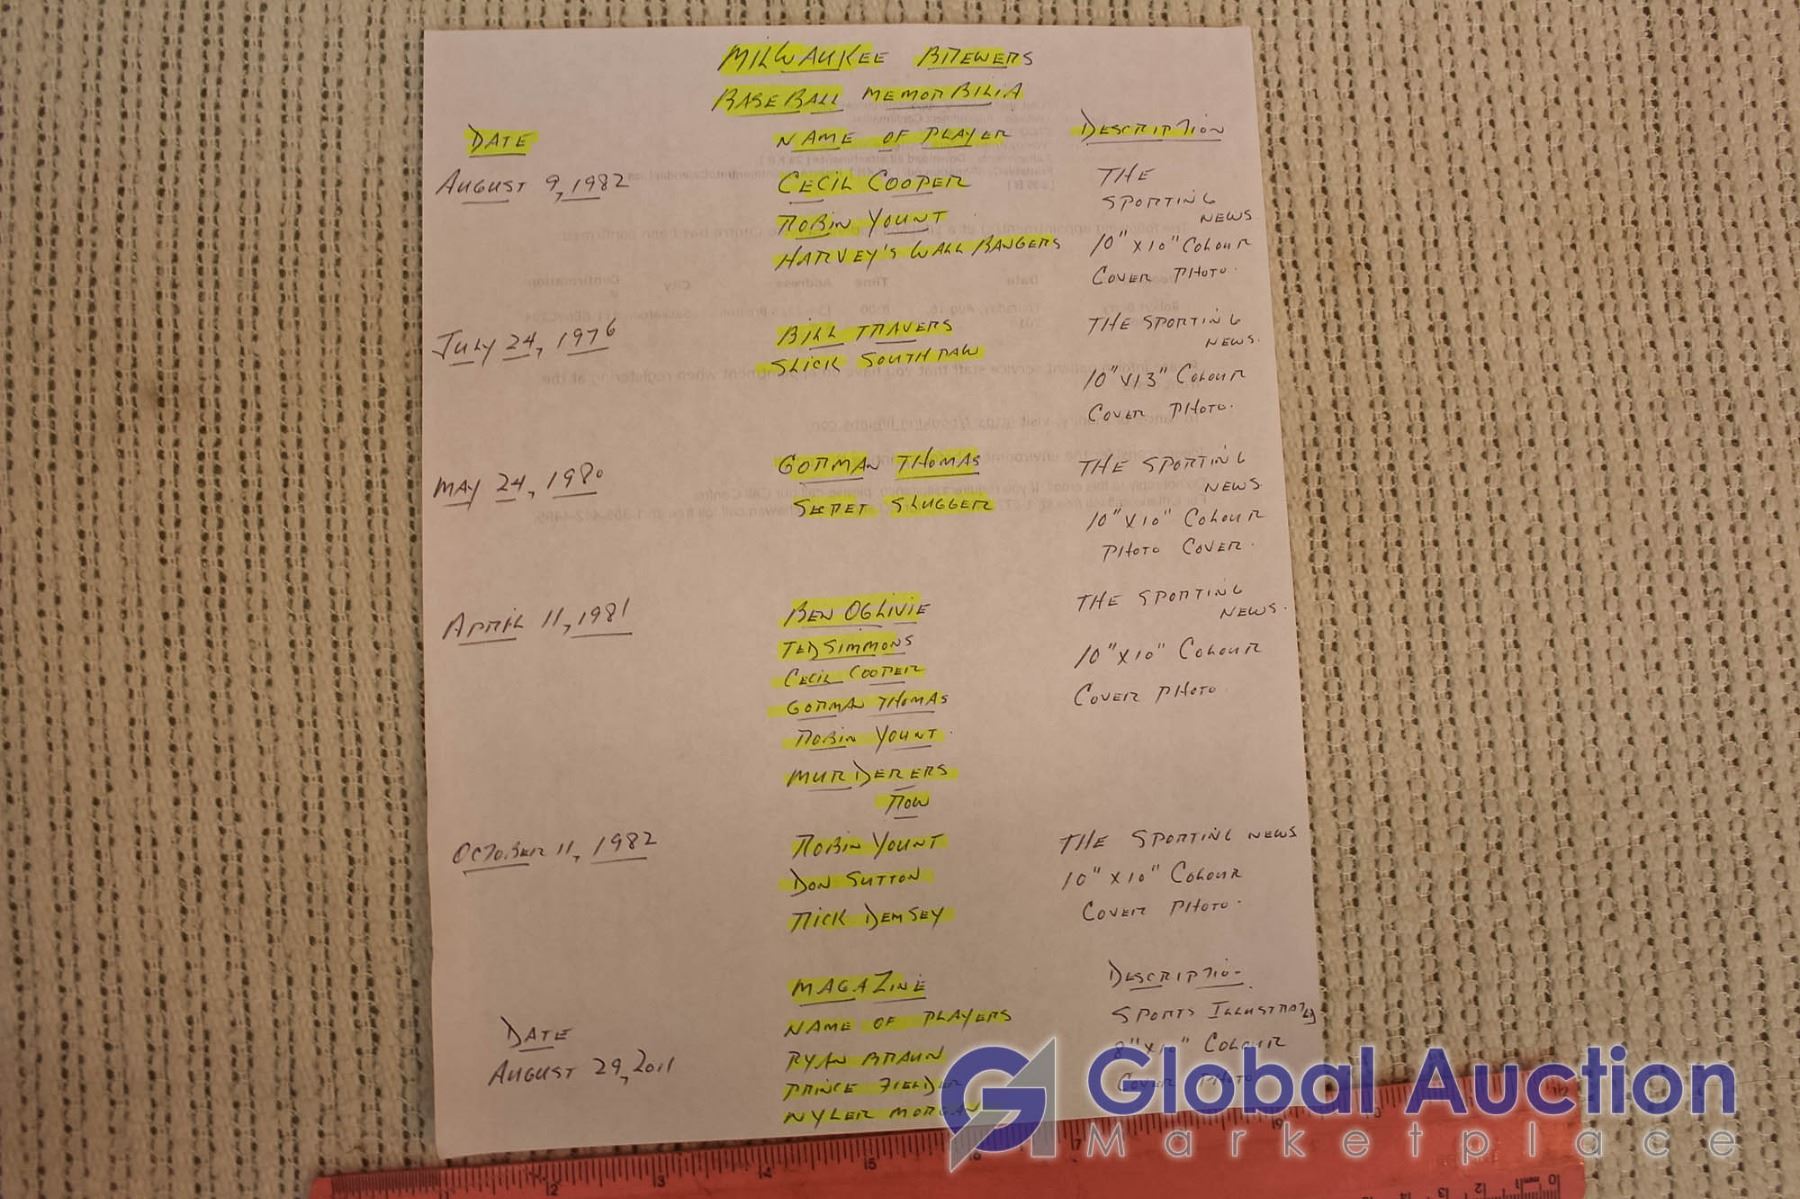 MILWAUKEE BREWERS
BASEBALL MEMORBILIA
DATE NAME OF PLAYER DESCRIPTION
AUGUST 9, 1982 CECIL COOPER THE
SPORTING
ROBIN YOUNT NEWS
HARVEY'S WALL BANGERS 10" X 10" COLOUR
COVER PHOTO.
JULY 24, 1976 BILL TRAVERS THE SPORTING
SLICK SOUTHPAW NEWS.
10" X 13" COLOUR
COVER PHOTO.
MAY 24, 1980 GORMAN THOMAS THE SPORTING
SECRET SLUGGER NEWS.
10" X 10" COLOUR
PHOTO COVER.
APRIL 11, 1981 BEN OGLIVIE THE SPORTING
NEWS.
TED SIMMONS 10" X 10" COLOUR
CECIL COOPER
GORMAN THOMAS COVER PHOTO
ROBIN YOUNT.
MURDERERS
ROW
OCTOBER 11, 1982 ROBIN YOUNT THE SPORTING NEWS
DON SUTTON 10" X 10" COLOUR
RICK DEMSEY COVER PHOTO.
MAGAZINE DESCRIPTION
DATE NAME OF PLAYERS SPORTS ILLUSTRATED
AUGUST 29, 2011 RYAN BRAUN 8" X 10" COLOUR
PRINCE FIELDER COVER PHOTO
NYLER MORGAN
Global Auction
Marketplace